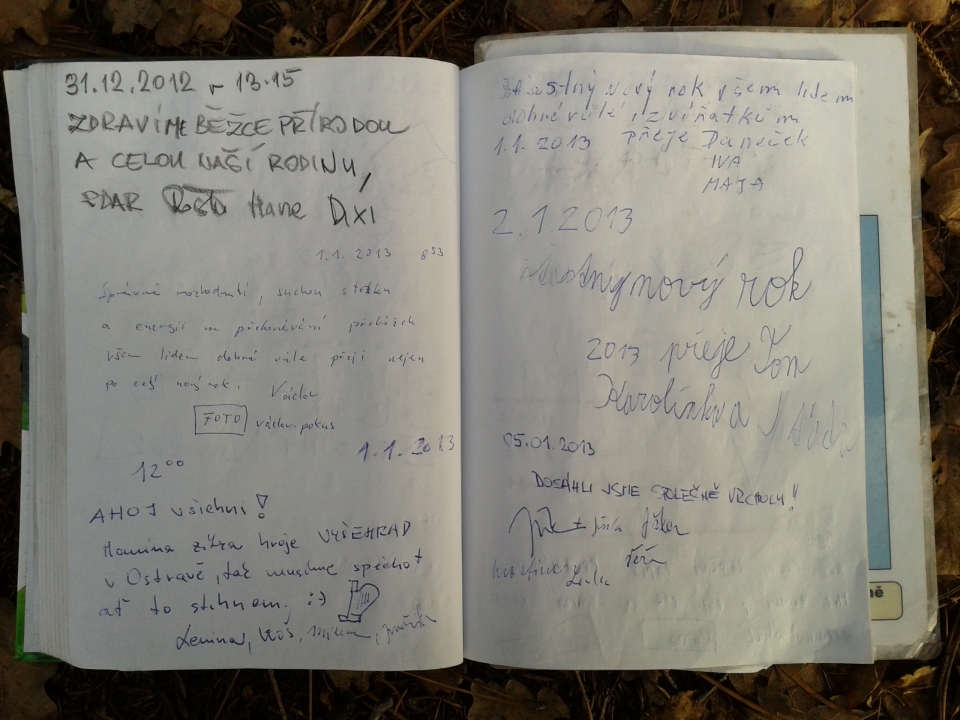 31.12.2012 - 13.15
ZDRAVÍME BĚŽCE PŘÍRODOU
A CELOU NAŠÍ RODINU,
ZDAR Hane DIXI
1.1. 2013 8 53
Správné rozhodnutí, suchou stezku
a energii na překonávání překážek
všem lidem dobré vůle přeji nejen
po celý nový rok. Václav
FOTO václav pokus
1.1.2013
12 00
AHOJ všichni!
Mamina zítra hraje VYŠEHRAD
v Ostravě, tak musíme spěchat
ať to stihnem. :-)
Šťastný nový rok všem lidem
dobré vůle i zvířátkům
1.1. 2013 přeje Daneček
IVA
MAJA
2.1.2013
Šťastný nový rok
2013 přeje Tom
Karolínka a
05.01.2013
DOSÁHLI JSME SPOLEČNĚ VRCHOLU!
ně